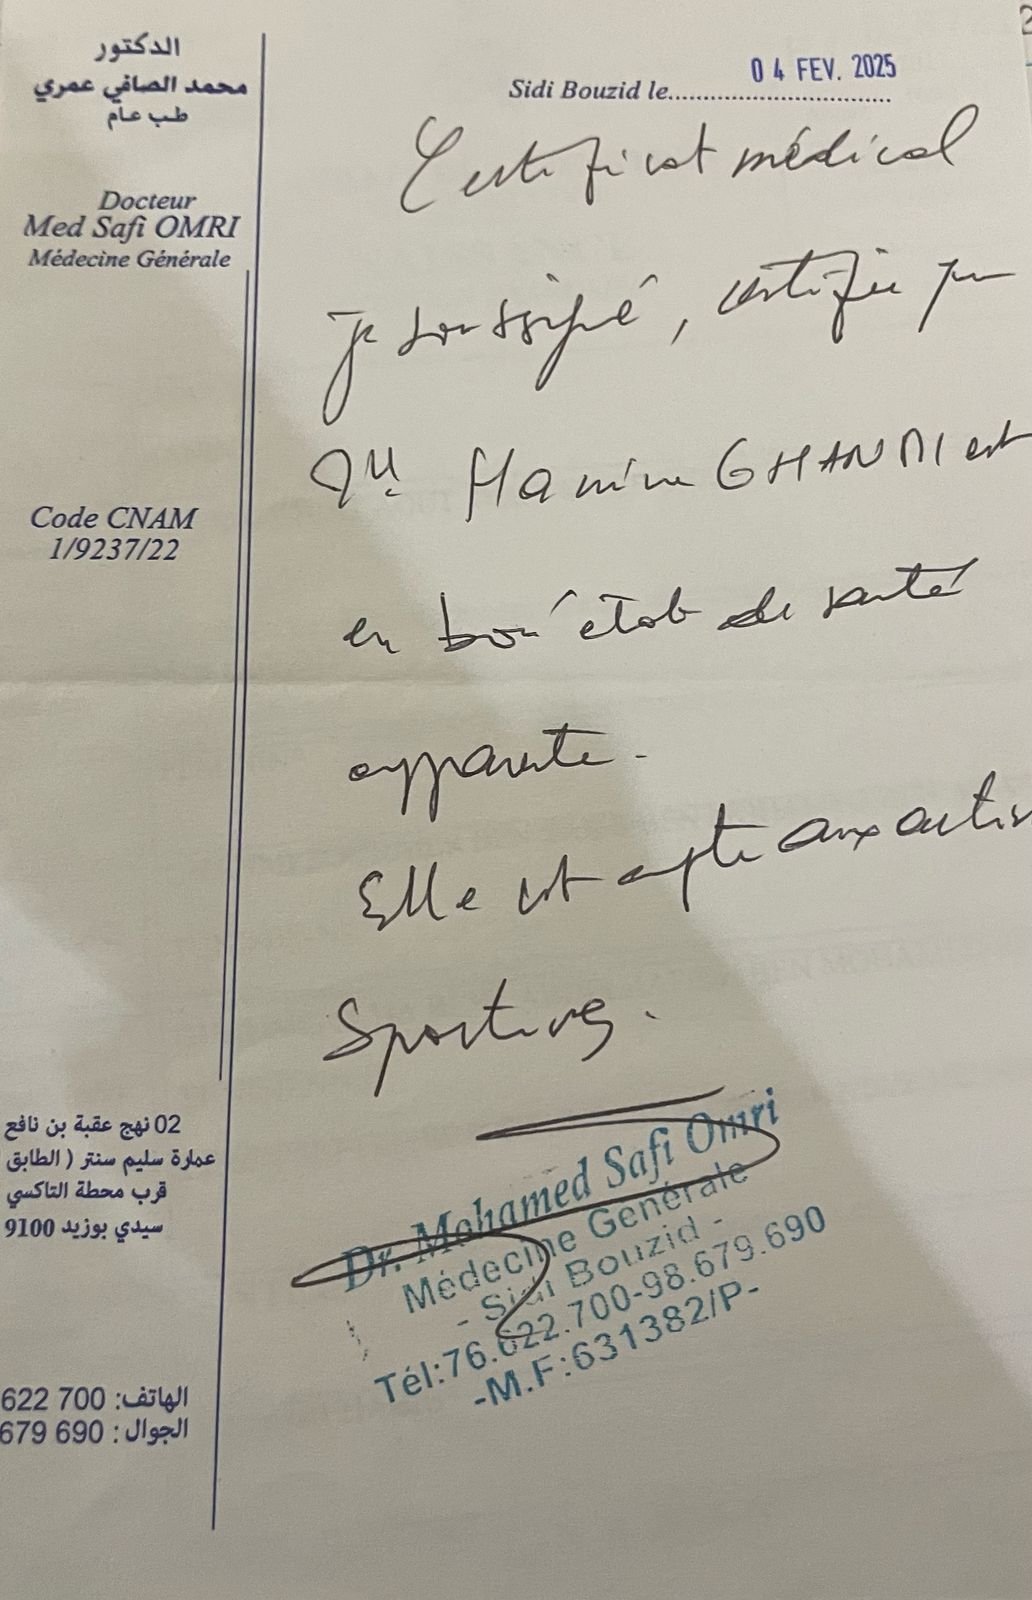 الدكتور
محمد الصافي عمري
طب عام
Docteur
Med Safi OMRI
Médecine Générale
Code CNAM
1/9237/22
02 نهج عقبة بن نافع
عمارة سليم سنتر ( الطابق
قرب محطة التاكسي
سيدي بوزيد 9100
الهاتف: 700 622
الجوال: 690 679
Sidi Bouzid le.................................. 04 FEV. 2025
Certificat médical
je soussigné, certifie que
Mlle GHANMI est
en bon état de santé
apparente.
Elle est apte aux activ
Sportives.
Dr. Mohamed Safi Omri
Médecine Generale
- Sidi Bouzid -
Tél:76.622.700-98.679.690
-M.F:631382/P-